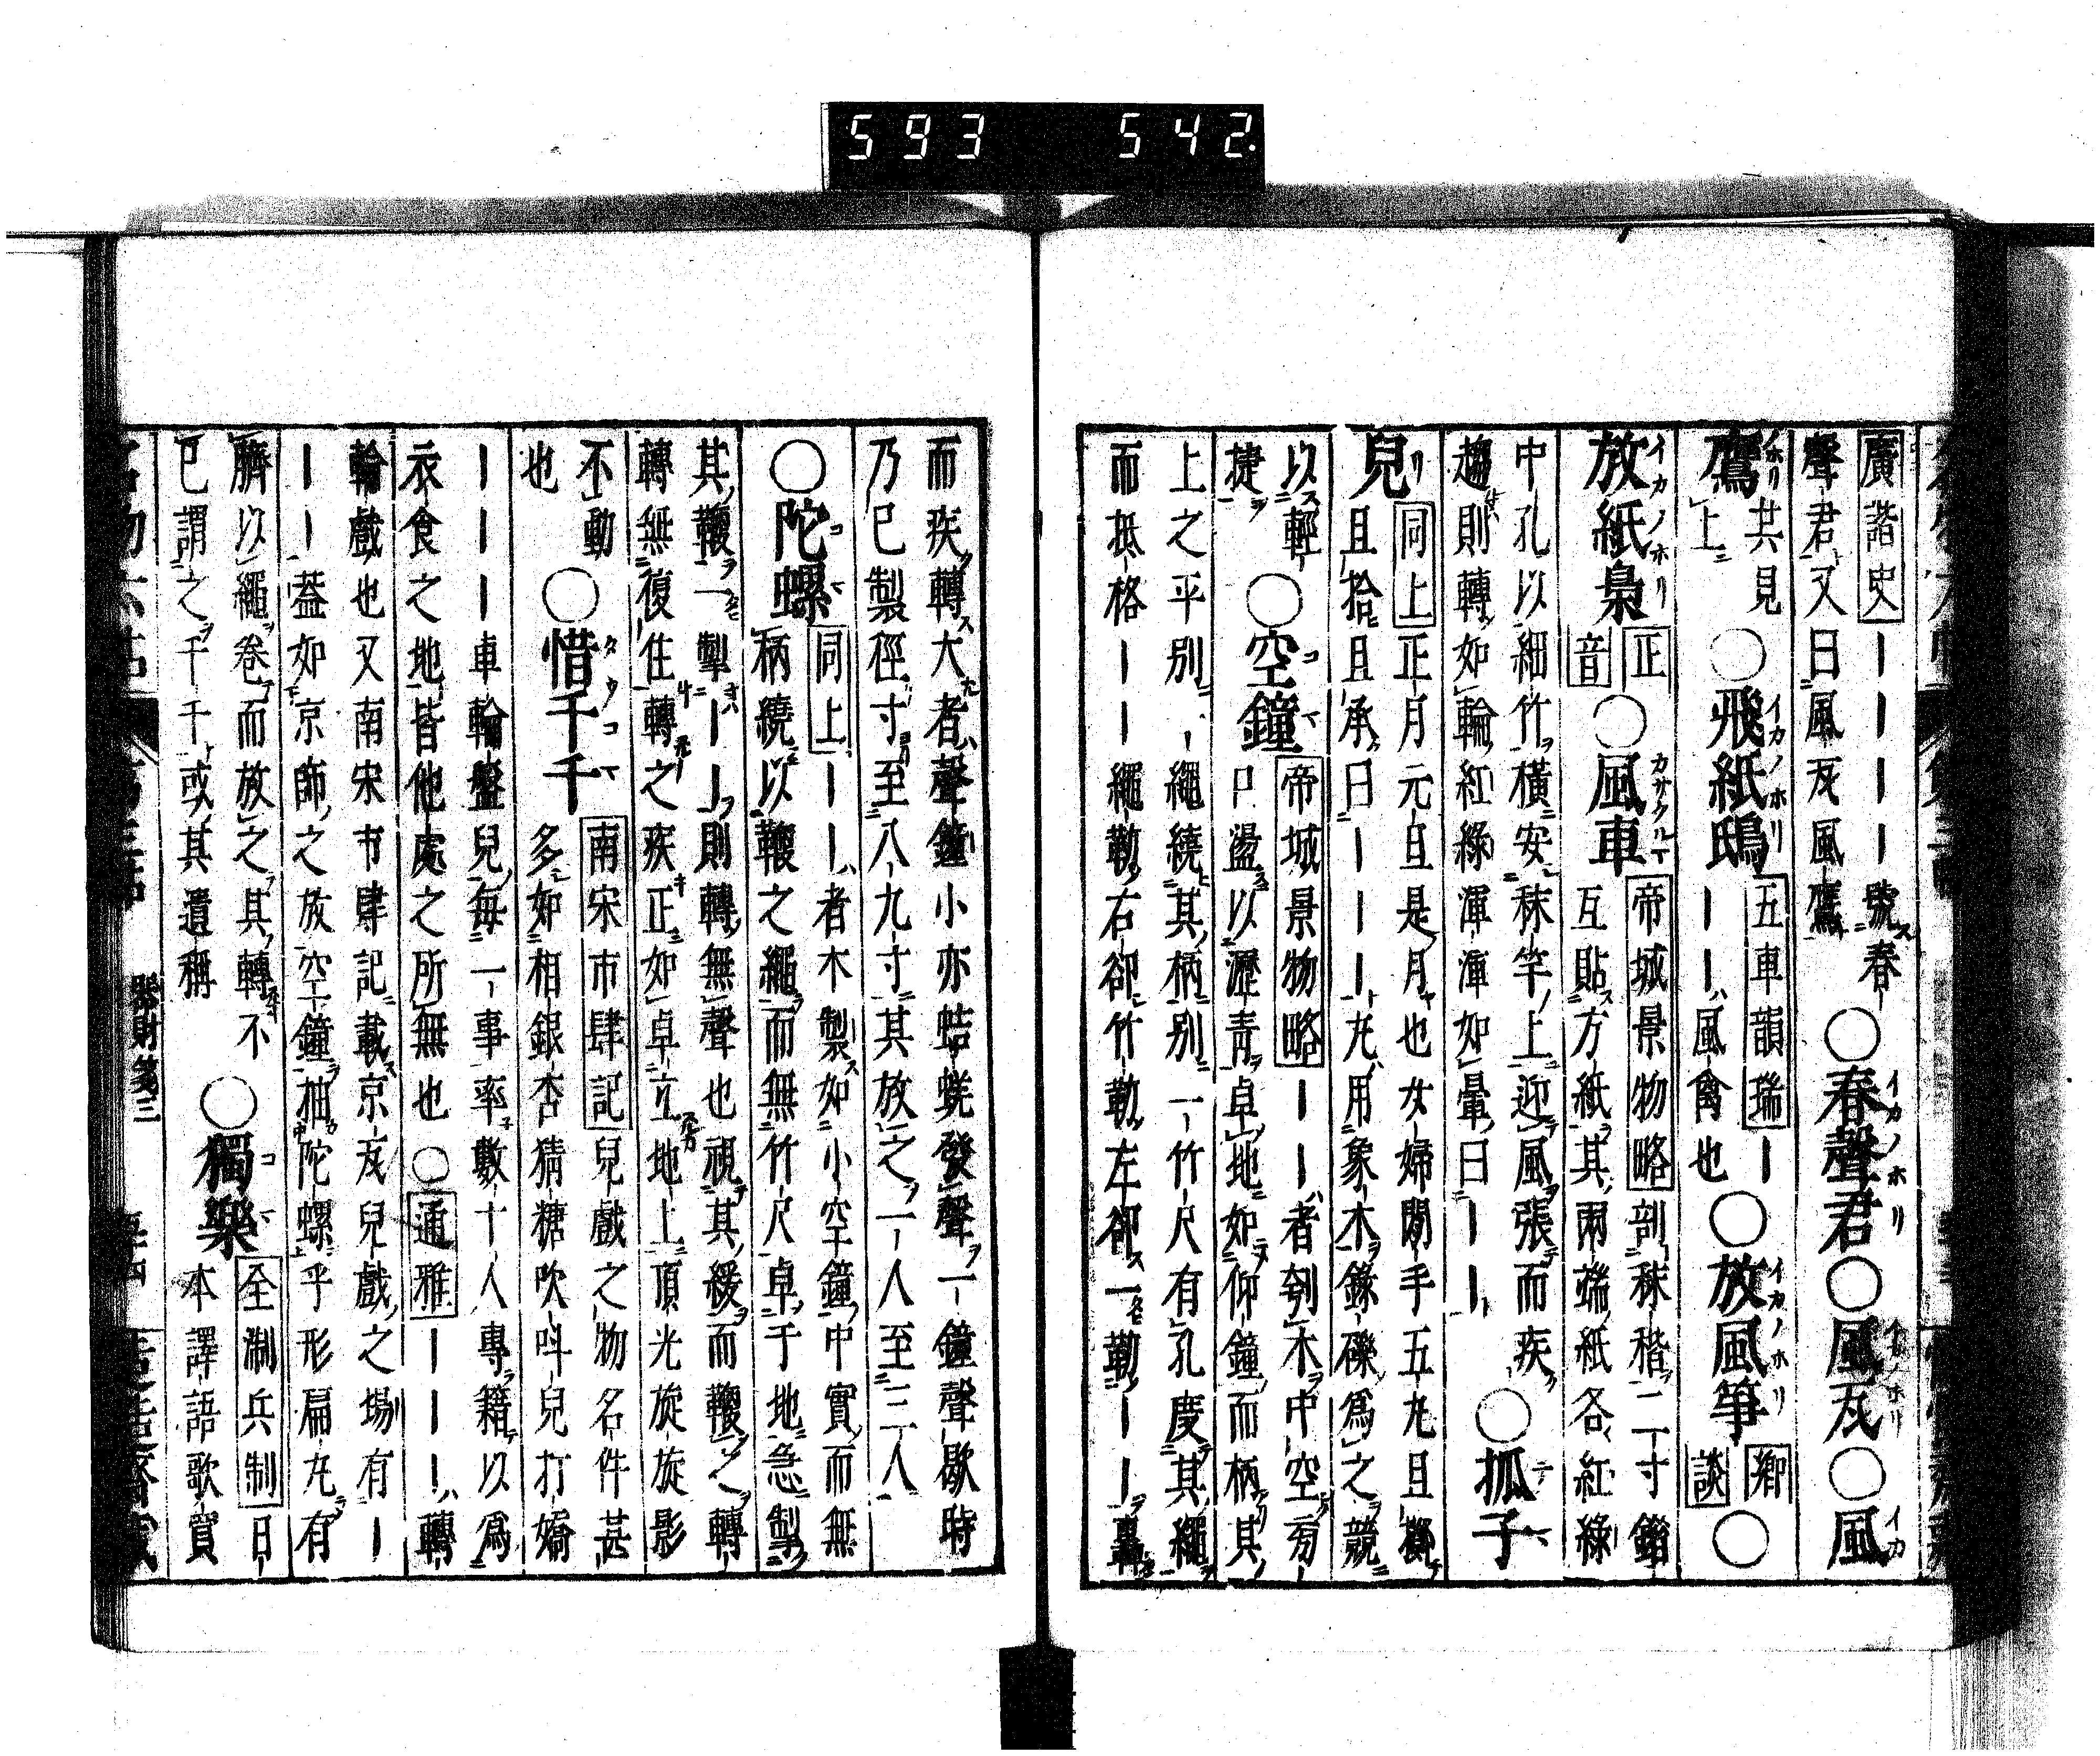 廣諧史｜｜｜｜號春
聲君又曰風瓦風鷹
○春聲君○風瓦○風
鷹
共見
上
○飛紙鴟
五車韻瑞｜
｜｜風禽也
○放風箏
鄉
談
○
放紙梟
正
音
○風車
帝城景物略剖秫稭二寸錯
互貼方紙其兩端紙各紅綠
中孔以細竹橫安秫竿上迎風張而疾
趨則轉如輪紅綠渾渾如暈曰｜｜
○抓子
兒
同上正月元旦是月也女婦閒手五丸且擲
且拾且承曰｜｜｜丸用象木銀礫爲之競
以輕
捷
○空鐘
帝城景物略｜｜者刳木中空旁
口盪以瀝青卓地如仰鐘而柄其
上之平別一繩繞其柄別一竹尺有孔度其繩
而抵格｜｜繩勒右卻竹勒左卻一勒｜｜轟
而疾轉大者聲鐘小亦蛣蜣發聲一鐘聲歇時
乃巳製徑寸至八九寸其放之一人至三人
○陀螺
同上｜｜者木製如小空鐘中實而無
柄繞以鞭之繩而無竹尺卓于地急掣
其鞭一掣｜｜則轉無聲也視其緩而鞭之轉
轉無復住轉之疾正如卓立地上頂光旋旋影
不動
也
○惜千千
南宋市肆記兒戲之物名件甚
多如相銀杏猜糖吹叫兒打嬌
｜｜｜車輪盤兒每一事率數十人專籍以爲
衣食之地皆他處之所無也○通雅｜｜｜轉
輪戲也又南宋市肆記載京瓦兒戲之場有｜
｜｜蓋如京師之放空鐘抽陀螺乎形扁丸有
臍以繩卷而放之其轉不
巳謂之千千或其遺稱
○獨樂
全淛兵制日
本譯語歌賀
器財箋三
593 542.